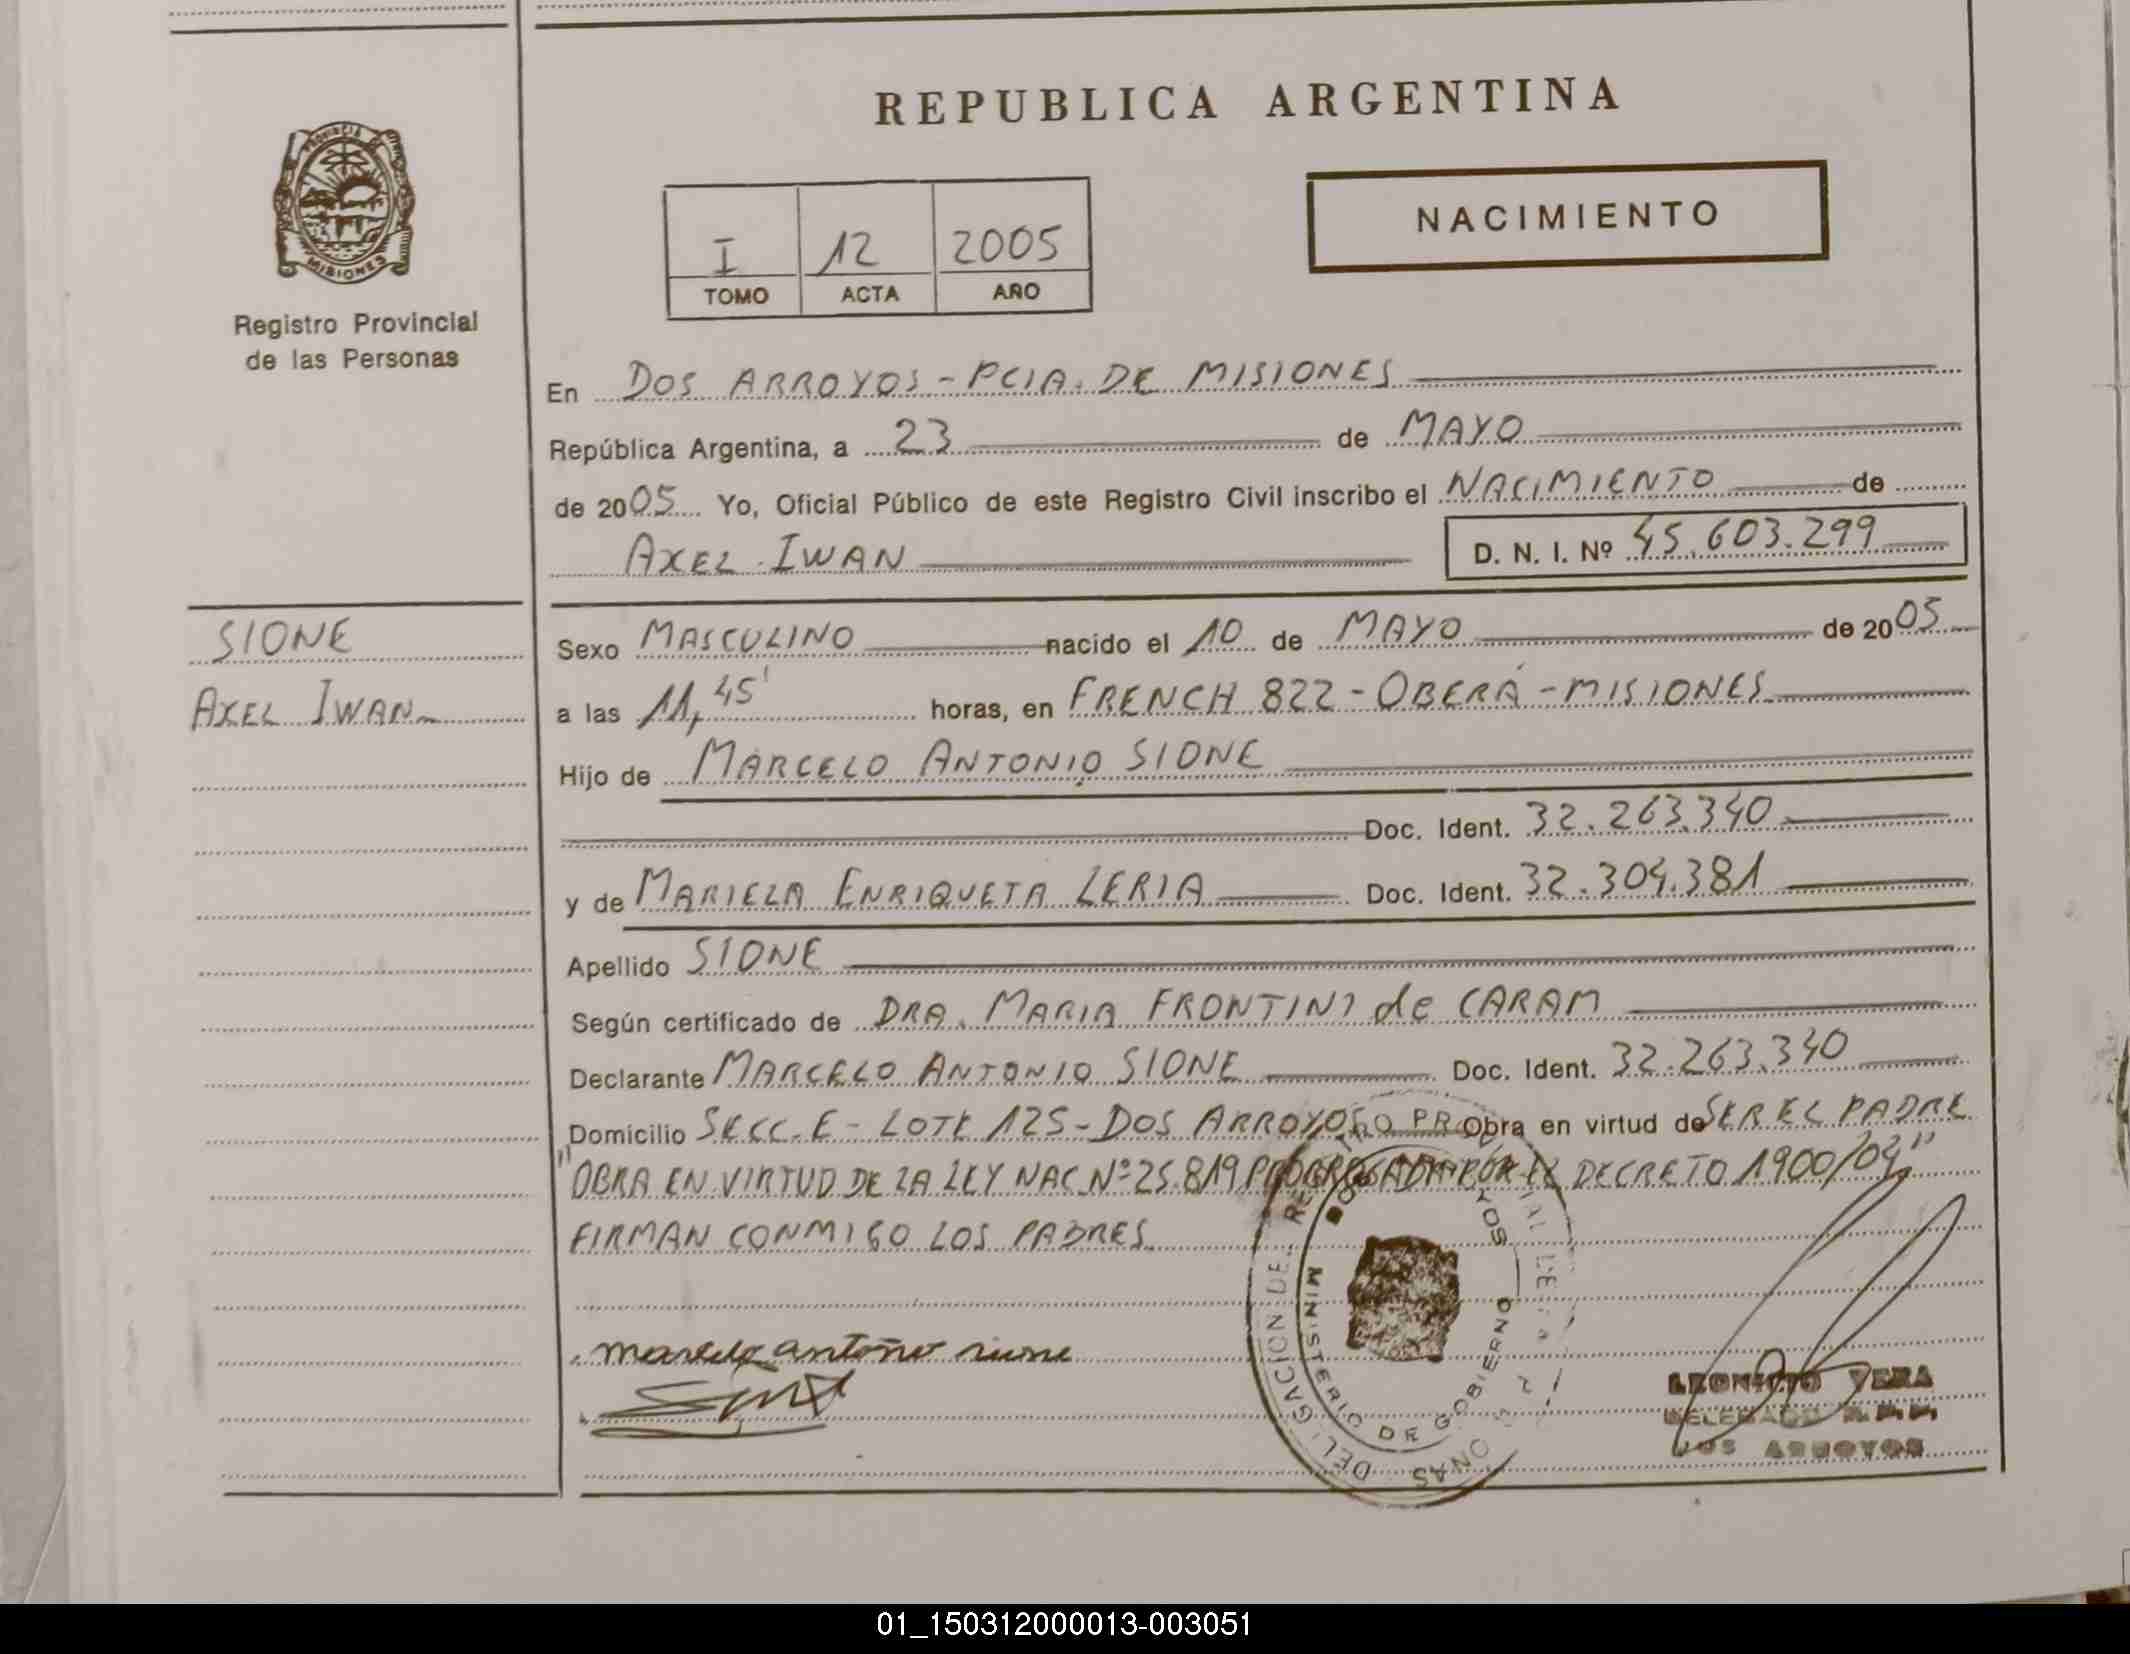 REPUBLICA ARGENTINA
PROVINCIA
MISIONES
Registro Provincial
de las Personas
NACIMIENTO
I 12 2005
TOMO ACTA AÑO
En DOS ARROYOS - PCIA. DE MISIONES
República Argentina, a 23 de MAYO
de 2005 Yo, Oficial Público de este Registro Civil inscribo el NACIMIENTO de
AXEL IWAN D. N. I. Nº 45.603.299
SIONE
AXEL IWAN
Sexo MASCULINO nacido el 10 de MAYO de 2005
a las 11,45' horas, en FRENCH 822 - OBERÁ - MISIONES
Hijo de MARCELO ANTONIO SIONE
Doc. Ident. 32.263.340
y de MARIELA ENRIQUETA LERIA Doc. Ident. 32.304.381
Apellido SIONE
Según certificado de DRA. MARIA FRONTINI de CARAM
Declarante MARCELO ANTONIO SIONE Doc. Ident. 32.263.340
Domicilio SECC. E - LOTE 125 - DOS ARROYOS Obra en virtud de SER EL PADRE
"OBRA EN VIRTUD DE LA LEY NAC. Nº 25.819 PRORROGADA POR EL DECRETO 1900/04"
FIRMAN CONMIGO LOS PADRES
marcelo antonio sione
MINISTERIO DE GOBIERNO
LEONICIO VERA
DELEGADO
DOS ARROYOS
01_150312000013-003051